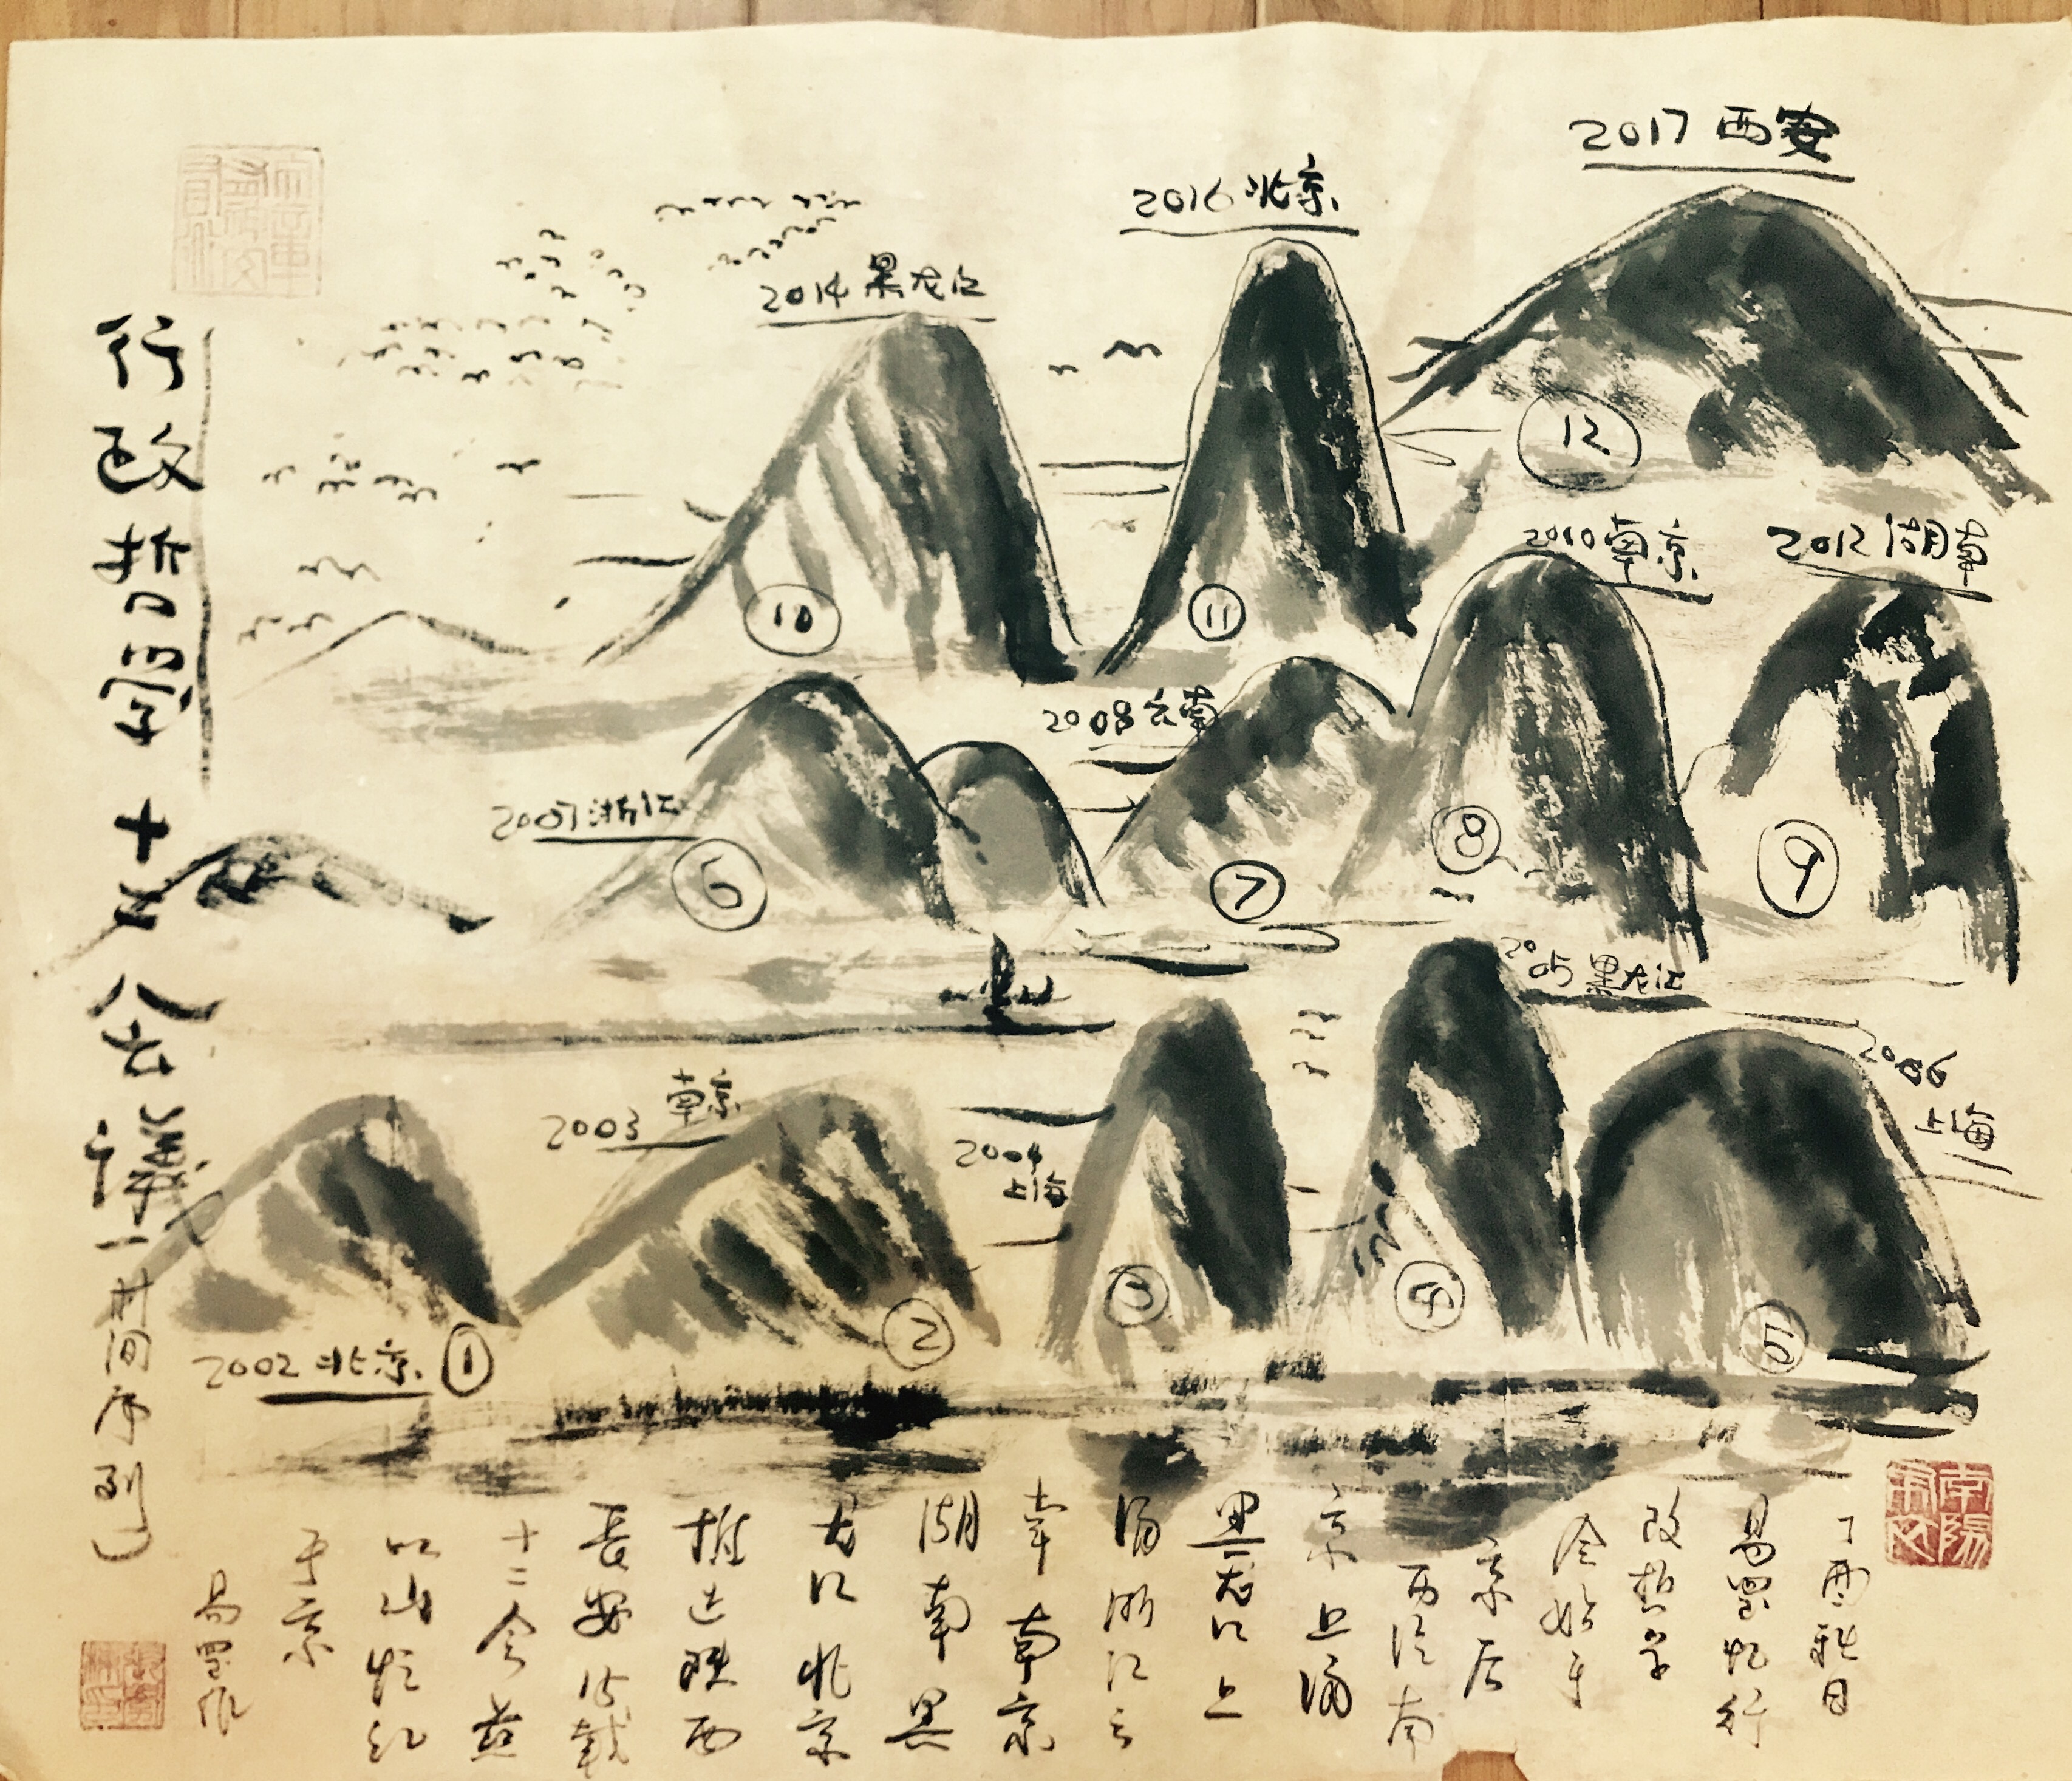 行政哲学十五公大讲
(时间序列)
2017 西安
2016 北京
2014 黑龙江
⑫
2010 南京
2012 湖南
⑩
⑪
2008 云南
2007 浙江
⑧
⑨
⑥
⑦
2005 黑龙江
2006
上海
2003 南京
2004
上海
③
④
②
⑤
2002 北京 ①
南阳
丁酉秋日
易墨忆行
政哲学
会始于
京后
西浴南
京上海
黑龙江上
海浙江云
南南京
湖南黑
龙江北京
推进联西
长安片载
十二会兹
以山忆红
于京
易墨作